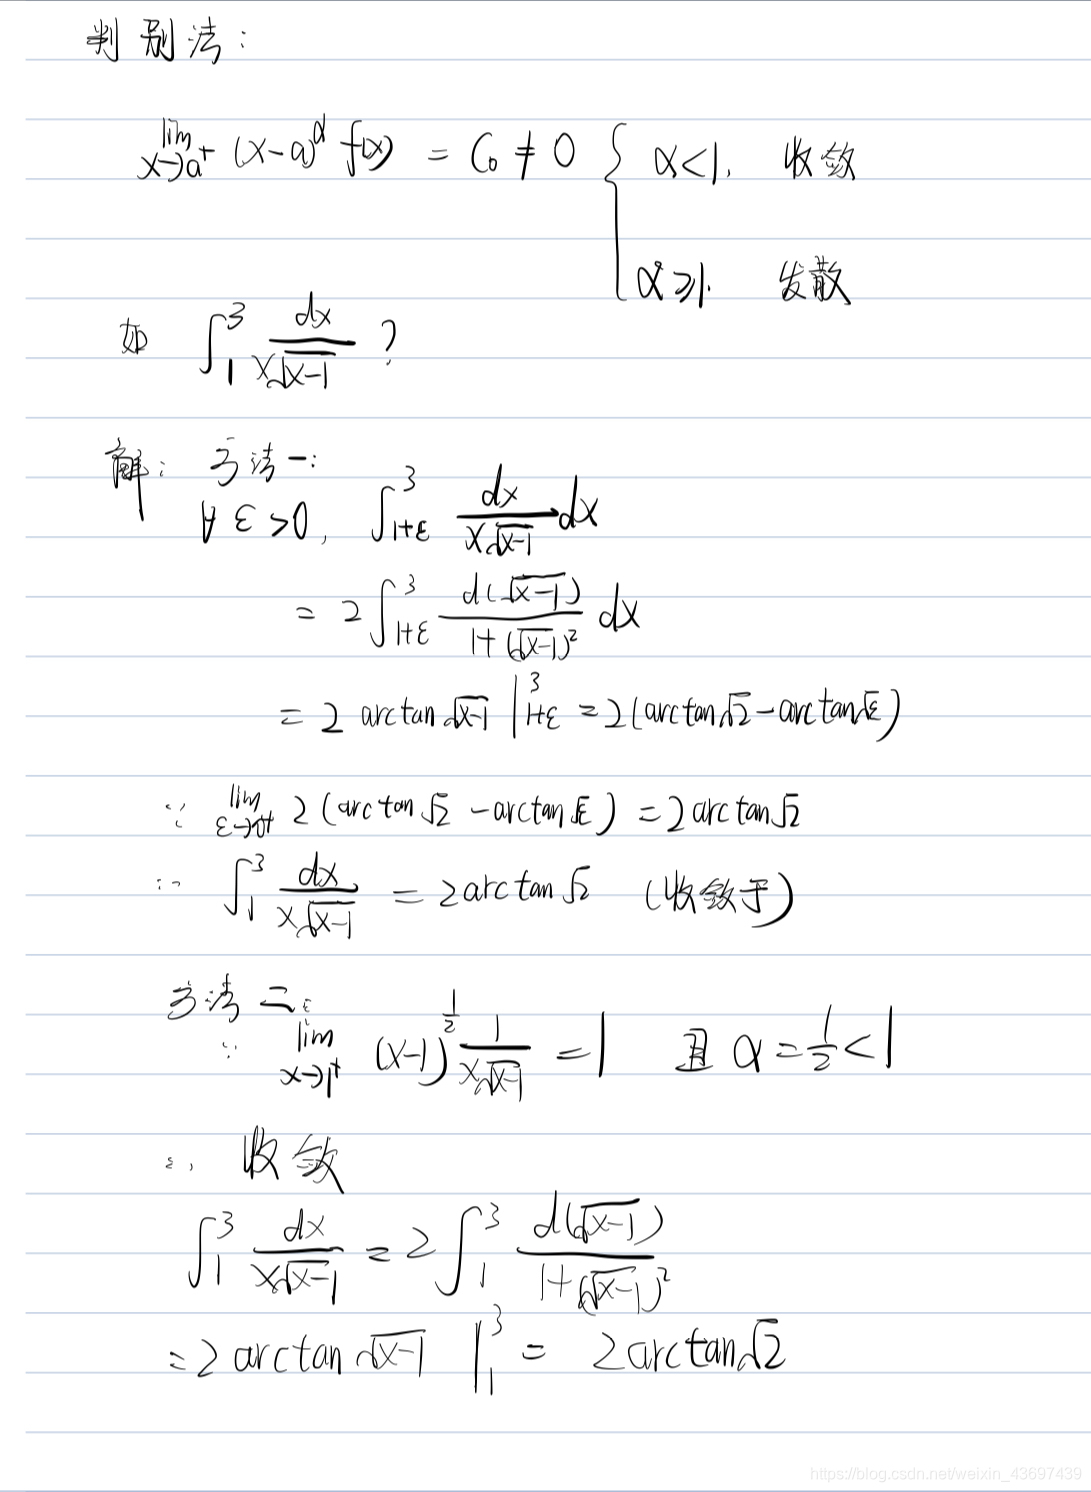 判别法:
lim x→a⁺ (x-a)^α f(x) = C₀ ≠ 0 { α<1, 收敛
α≥1. 发散
如 ∫₁³ dx/(x√(x-1)) ?
解: 方法一:
∀ ε>0, ∫_{1+ε}^3 dx/(x√(x-1)) dx
= 2∫_{1+ε}^3 d(√(x-1))/(1+(√(x-1))²) dx
= 2 arctan √(x-1) |_{1+ε}^3 = 2(arctan√2 - arctan√ε)
∵ lim ε→0+ 2(arctan√2 - arctan√ε) = 2arctan√2
∴ ∫₁³ dx/(x√(x-1)) = 2arctan√2 (收敛于)
方法二:
∵ lim x→1⁺ (x-1)^{1/2} 1/(x√(x-1)) = 1 且 α = 1/2 < 1
∴ 收敛
∫₁³ dx/(x√(x-1)) = 2∫₁³ d(√(x-1))/(1+(√(x-1))²)
= 2 arctan √(x-1) |₁³ = 2arctan√2
https://blog.csdn.net/weixin_43697439